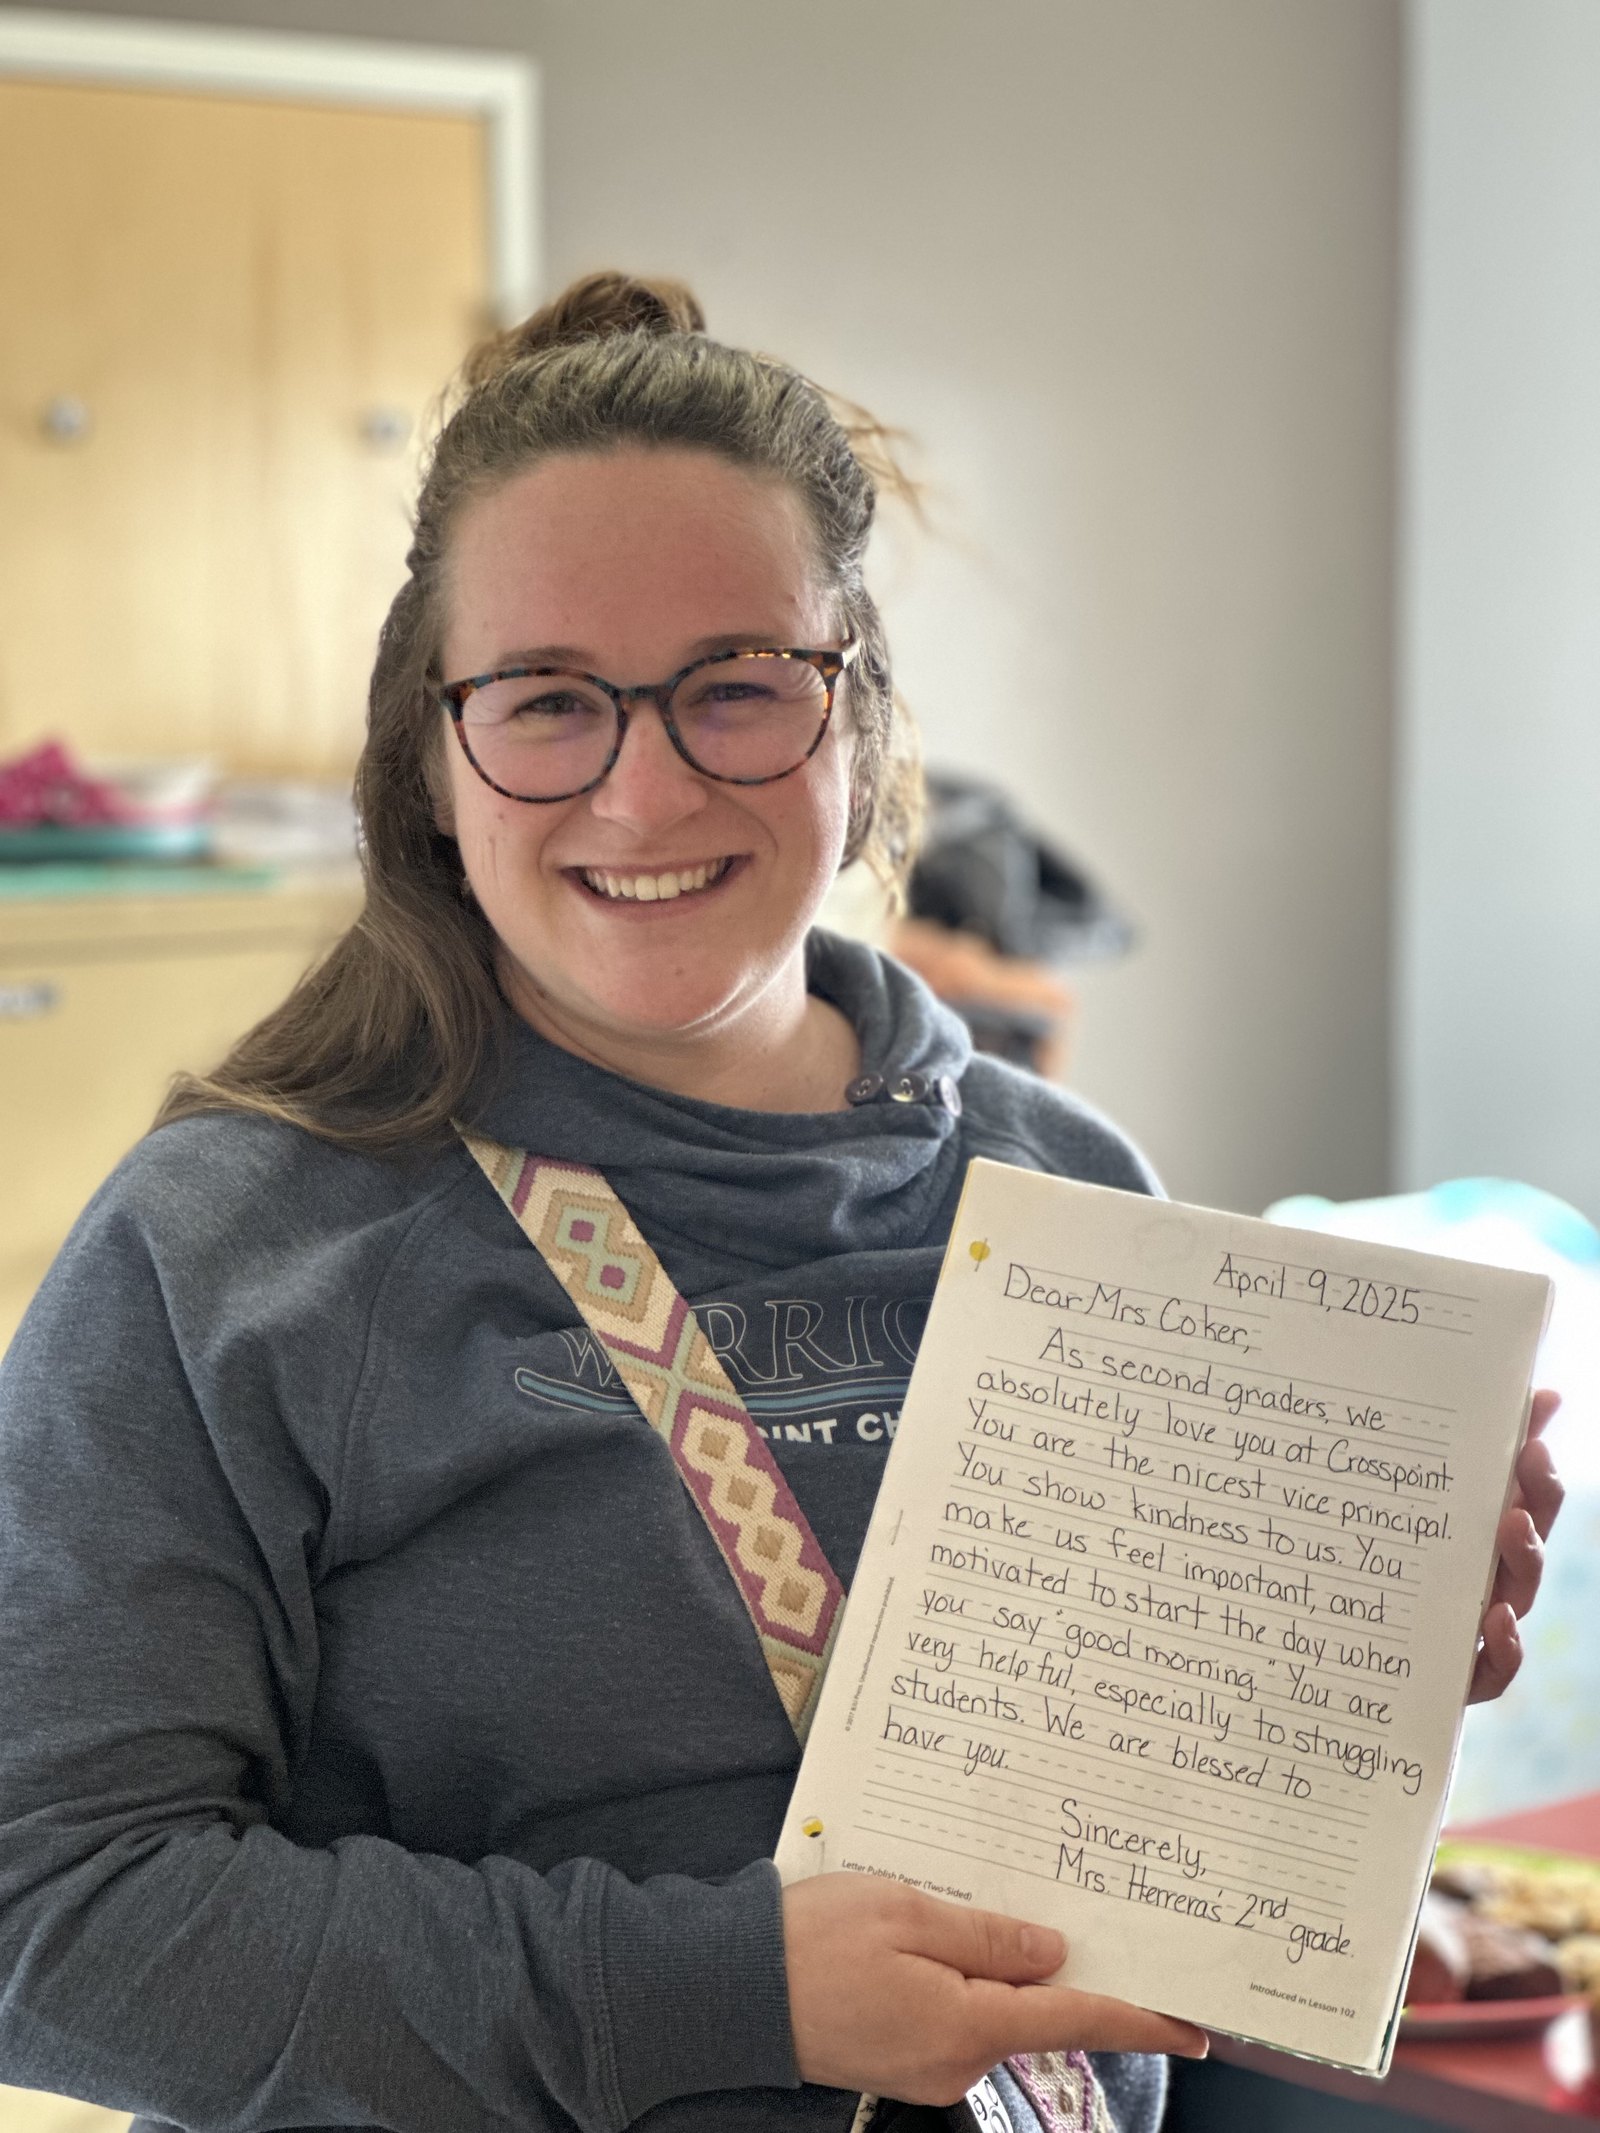 WARRIO
POINT CH
April 9, 2025
Dear Mrs Coker,
As second graders, we
absolutely love you at Crosspoint.
You are the nicest vice principal.
You show kindness to us. You
make us feel important, and
motivated to start the day when
you say "good morning." You are
very helpful, especially to struggling
students. We are blessed to
have you.
Sincerely,
Mrs. Herrera's 2nd
grade.
Letter Publish Paper (Two-Sided)
Introduced in Lesson 102